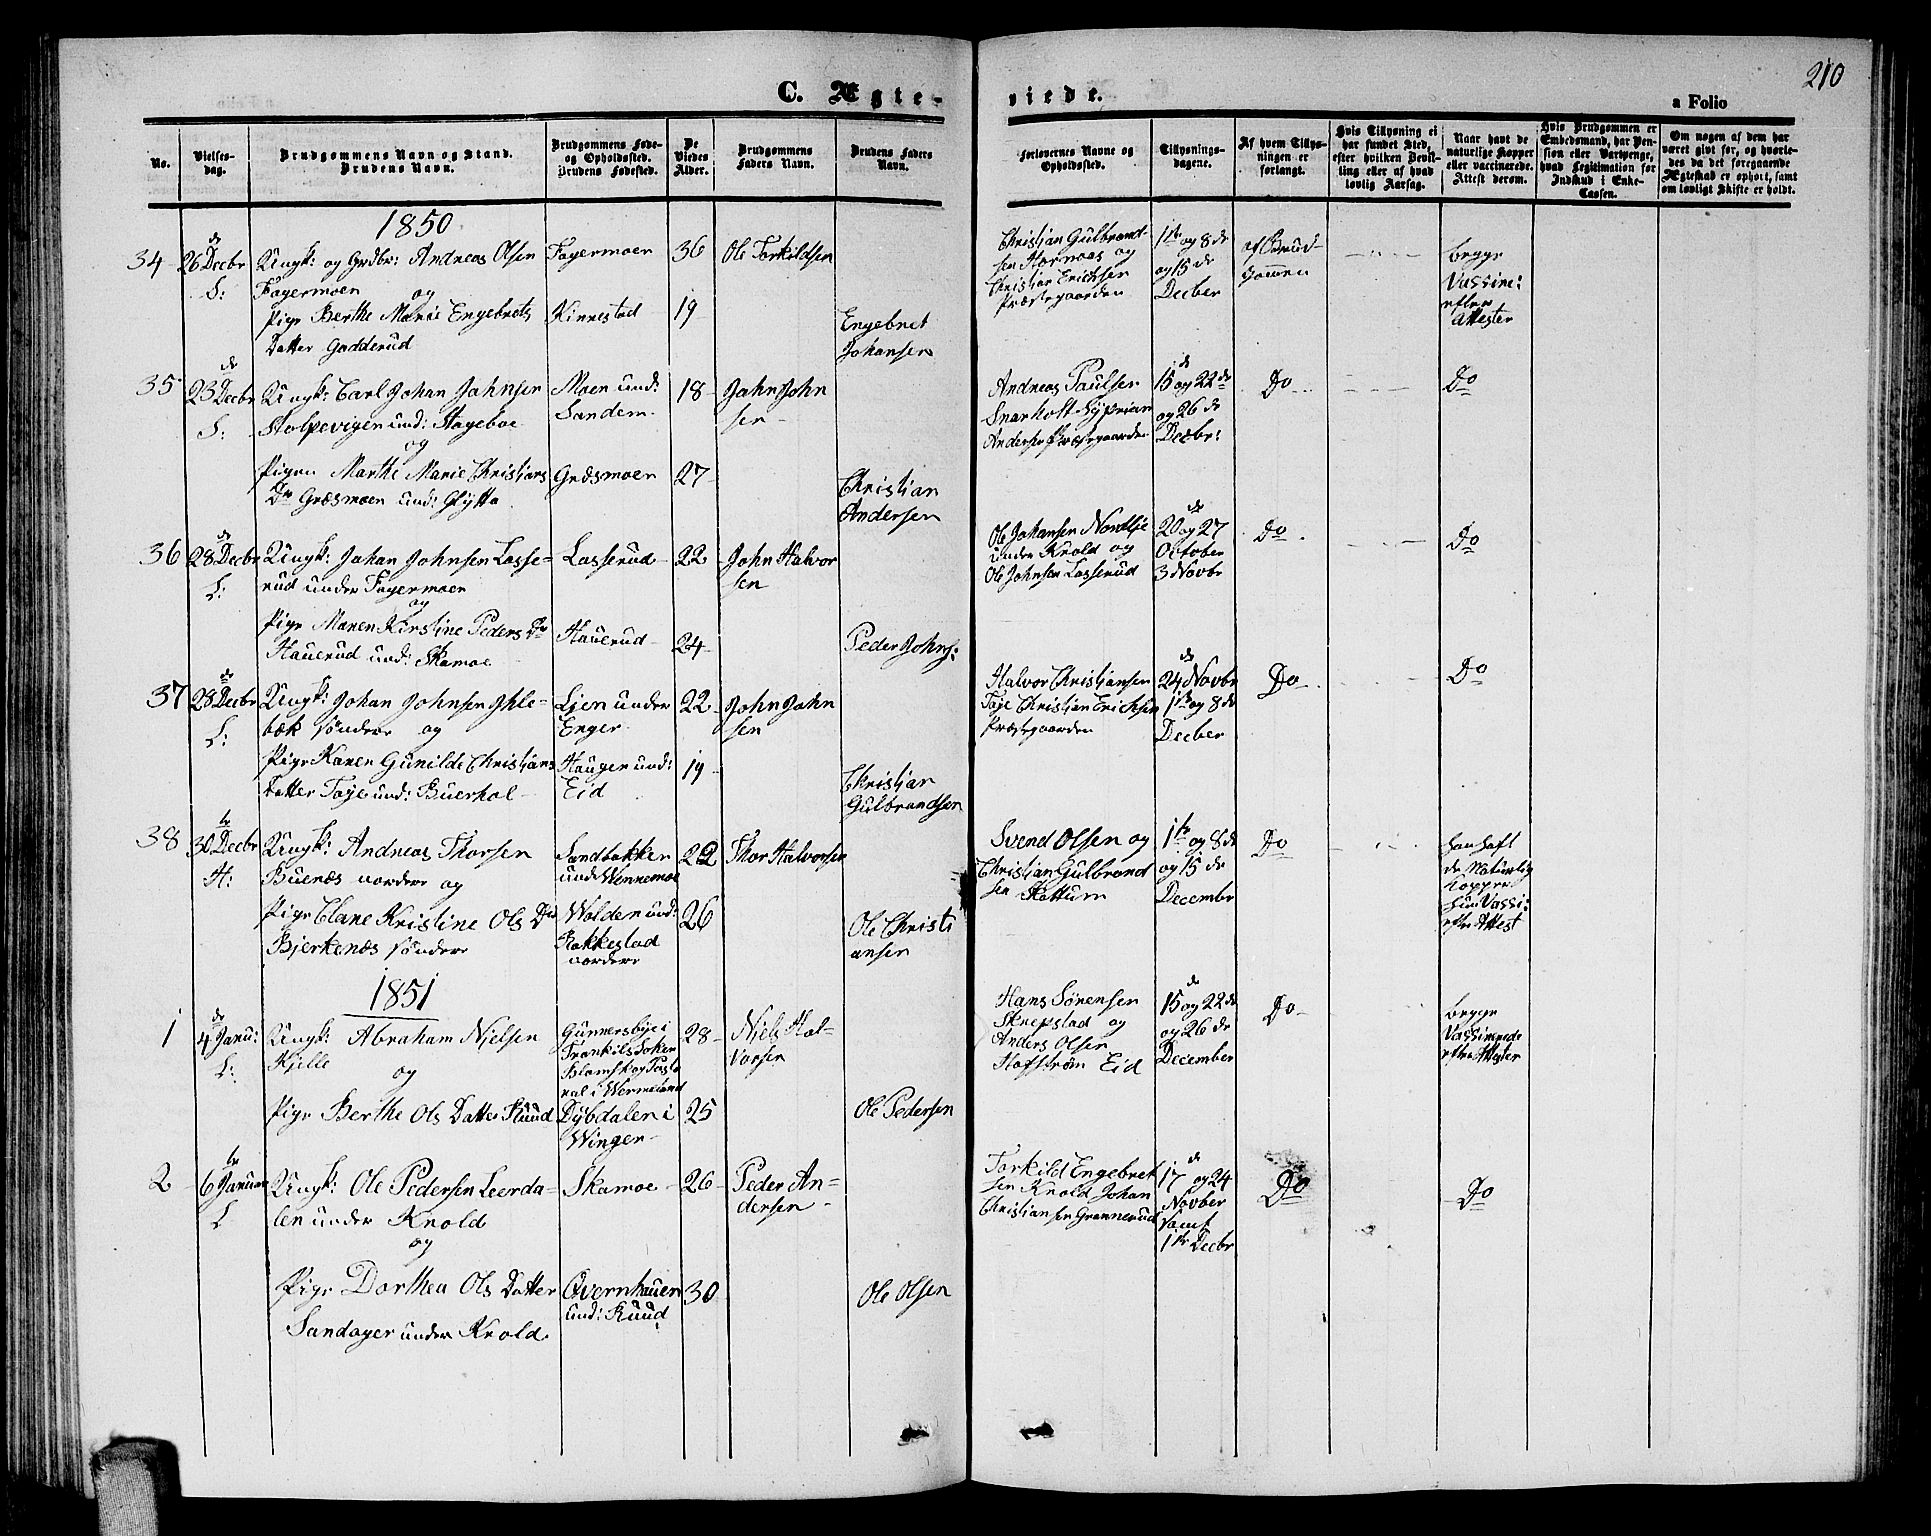 210
C. Ægte-
viede.
a Folio
No.
Vielses-
dag.
Brudgommens Navn og Stand.
Brudens Navn.
Brudgommens Føde-
og Opholdssted.
Brudens Fødested.
De
Viedes
Alder.
Brudgommens
Faders Navn.
Brudens Faders
Navn.
Forlovernes Navne og
Opholdssted.
Tillysnings-
dagene.
Af hvem Tillys-
ningen er
forlangt.
Hvis Tillysning ei
har fundet Sted,
efter hvilken Bevil-
ling eller af hvad
lovlig Aarsag.
Naar havt de
naturlige Kopper
eller vaccinerede.
Attest derom.
Hvis Brudgommen er
Embedsmand, har Pen-
sion eller Vartpenge,
hvad Legitimation for
Indskud i Enke-
Cassen.
Om nogen af dem har
været givt før, og hvorle-
des da det foregaaende
Ægteskab er ophørt, samt
om lovligt Skifte er holdt.
1850
34
26 de Decbr
L:
Ungk: og Grdbr: Andreas Olsen
Fagermoen
og
Pige Berthe Marie Engebrets
Datter Gadderud
Fagermoen
Kinnestad
36
19
Ole Torkildsen
Engebret
Johansen
Christian Gulbrand-
sen Hornaas og
Christian Erichsen
Præstegaarden
1ste og 8 de
og 15 de
Decber
af Brud-
gomen
begge
Vassine:
efter
Attester
35
23 de Decbr
L:
Ungk: Carl Johan Johnsen
Stolpevigen und: Hageboe
og
Pigen Marthe Marie Christians
Dr Græsmoen und: Glytta
Moen und:
Sandem
Græsmoen
18
27
John John
sen
Christian
Andersen
Andreas Paulsen
Snarholt Syprian
Andersen Præstegaarden
15 de og 22 de
og 26 de
Decbr:
Do
Do
36
28 de Decbr
L:
Ungk: Johan Johnsen Lasse-
rud under Fagermoen
og
Pige Maren Kirstine Peders Dr
Hauerud und: Skamoe
Lasserud
Hauerud
22
24
John Halvor
sen
Peder Johns:
Ole Johansen Nordlie
under Krold og
Ole Johnsen Lasserud
20 de og 27
October
3 Novbr
Do
Do
37
28 de Decbr
L:
Ungk: Johan Johnsen Ihle-
bæk søndre og
Pige Karen Gunilde Christians
Datter Taje und: Buerhol
Lien under
Enger
Haugen und:
Eid
22
19
John John
sen
Christian
Gulbrandsen
Halvor Christiansen
Taje Christian Erichsen
Præstegaarden
24 de Novbr
1ste og 8 de
Decber
Do
Do
38
30 te Decbr
H:
Ungk: Andreas Thorsen
Buenæs nordre og
Pige Elane Kristine Ols Dr
Bjerkenæs søndre
Sandbakken
und: Wennemoe
Wolden und:
Rakkestad
nordre
22
26
Thor Halvorsen
Ole Christi
ansen
Svend Olsen og
Christian Gulbrand
sen Skottum
1ste og 8 de
og 15 de
December
Do
han haft
de Naturlig
Kopper
hun Vassi:
efter Attest
1851
1
4 de Janu:
L:
Ungk: Abraham Nielsen
Kjille
og
Pige Berthe Ols Datter Ruud
Gunnersbye i
Frankils Soken
Blamskog Pasto
rat i Wermeland
Dybdalen i
Winger
28
25
Niels Hal-
vorsen
Ole Pedersen
Hans Sørensen
Skrepstad og
Anders Olsen
Hofstrøm Eid
15 de og 22 de
og 26 de
December
Do
begge
Vassinerede
efter Attester
2
6 te Januar
L
Ungk: Ole Pedersen Leerda-
len under Krold
og
Pige Dorthea Ols Datter
Sandager under Krold
Skamoe
Overnhauen
und: Ruud
26
30
Peder An-
dersen
Ole Olsen
Torkild Engebret
sen Krold Johan
Christiansen Grønnerud
17 de og 24
Novber
samt
1ste Decbr
Do
Do